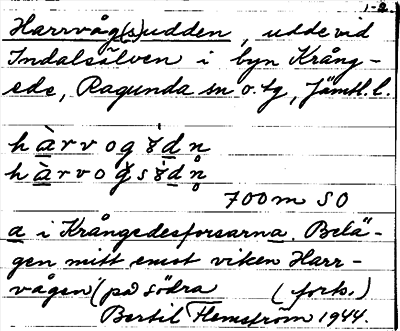 1-2
Harrvåg(s)udden, udde vid
Indalsälven i byn Krång-
ede, Ragunda sn o. tg, Jämtl. l.
700 m SO
a i Krångedesforsarna. Belä-
gen mitt emot viken Harr-
vågen (på södra (forts.)
Bertil Flemström 1944.